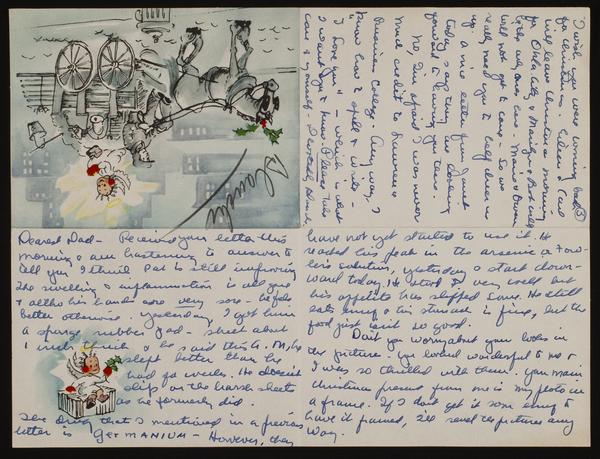 Dearest Dad - Received your letter this
morning & am hastening to answer &
tell you I think Pat is still improving
The swelling & inflammation is all gone
& altho his hands are very sore - he feels
better otherwise. Yesterday, I got him
a sponge rubber pad - about
1 inch thick & he said this A.M., he
slept better than he
had for weeks. He doesn't
slip on the harsh sheet
as he formerly did.
The drug that I mentioned in a previous
letter is GERMANIUM - However, they
have not yet started to use it. He
reached his peak in the arsenic or Fow-
ler's solution, yesterday & start down-
ward today. He stood it very well but
his appetite has slipped some. He still
eats enuf & his stomach is fine, but the
food just isn't so good.
Don't you worry about your looks in
the picture. You looked wonderful to me &
I was so thrilled with them. Your main
Christmas present from me is my photo in
a frame. If I don't get it soon enuf to
have it framed, I'll send the pictures any
way.
(3)
I wish you were coming back
for Christmas. Eileen & Carl
will leave Christmas morning
for Okla City &
will not get to come - So we
really need you to help cheer us
up. A nice letter from Janet
today saying was looking
forward to having you there.
No, I'm afraid I was never
much credit to Lawrence
Business College. Any way, I
know how to spell & write -
"I love you" - which is what
I want you to know. Please take
care of yourself - Devotedly, Blanche
Blanche